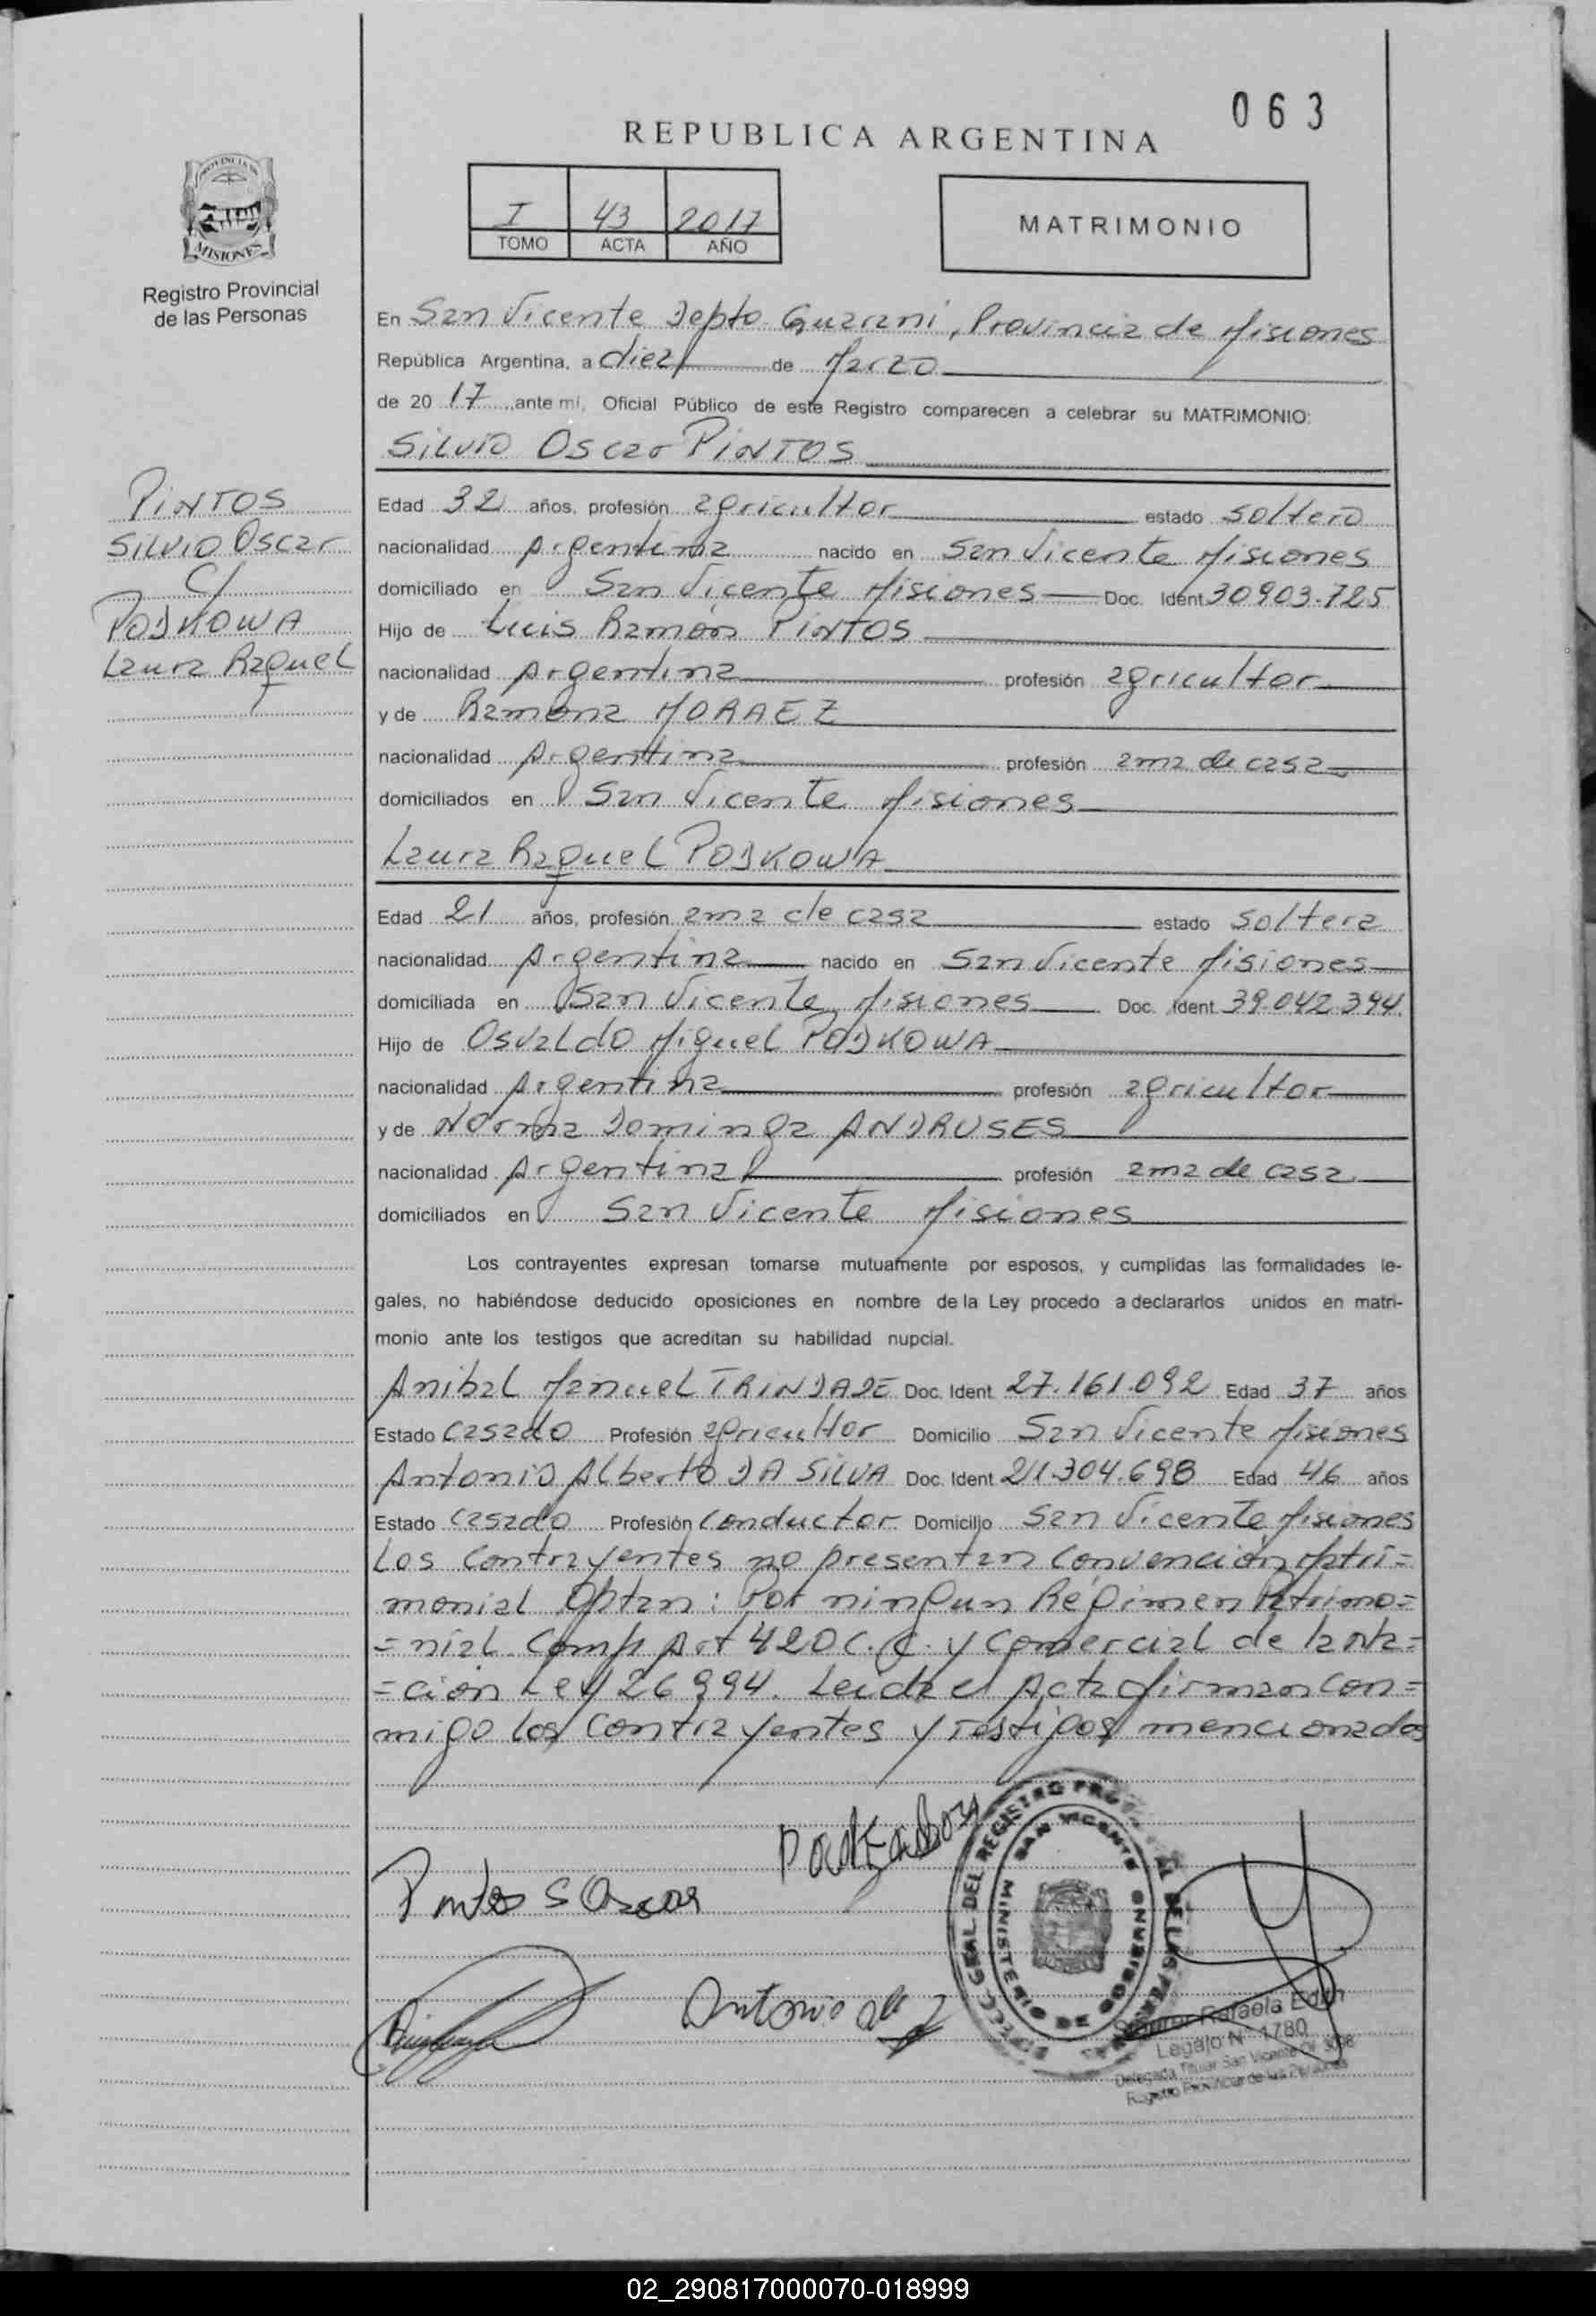 063
REPUBLICA ARGENTINA
I 43 2017
TOMO ACTA AÑO
MATRIMONIO
PROVINCIA DE
MISIONES
Registro Provincial
de las Personas
En San Vicente Depto Guarani, Provincia de Misiones
República Argentina, a diez de Marzo
de 20 17 ante mi, Oficial Público de este Registro comparecen a celebrar su MATRIMONIO:
Silvio Oscar PINTOS
PINTOS
Silvio Oscar
C/
PODKOWA
Laura Raquel
Edad 32 años, profesión agricultor estado soltero
nacionalidad Argentina nacido en San Vicente Misiones
domiciliado en San Vicente Misiones Doc. Ident 30903.725
Hijo de Luis Ramón PINTOS
nacionalidad Argentina profesión agricultor
y de Ramona MORAEZ
nacionalidad Argentina profesión ama de casa
domiciliados en San Vicente Misiones
Laura Raquel PODKOWA
Edad 21 años, profesión ama de casa estado soltera
nacionalidad Argentina nacido en San Vicente Misiones
domiciliada en San Vicente Misiones Doc. Ident 39.042.394.
Hijo de Osvaldo Miguel PODKOWA
nacionalidad Argentina profesión agricultor
y de Norma Dominga ANDRUSES
nacionalidad Argentina profesión ama de casa.
domiciliados en San Vicente Misiones
Los contrayentes expresan tomarse mutuamente por esposos, y cumplidas las formalidades le-
gales, no habiéndose deducido oposiciones en nombre de la Ley procedo a declararlos unidos en matri-
monio ante los testigos que acreditan su habilidad nupcial.
Anibal Manuel TRINDADE Doc. Ident 27.161.092 Edad 37 años
Estado casado Profesión agricultor Domicilio San Vicente Misiones
Antonio Alberto DA SILVA Doc. Ident 21.304.698 Edad 46 años
Estado casado Profesión conductor Domicilio San Vicente Misiones
Los contrayentes no presentan convención Matri=
monial Optan: Por ningun Régimen Patrimo=
=nial. Comp Art 420 C.C. y Comercial de la Na=
=cion Ley 26994. Leida el Acta firman con=
migo los contrayentes y Testigos mencionados
Pintos S Oscar
Antonio
SAN VICENTE
MINISTERIO DE GOBIERNO
Rafaela Edith
Legajo N° 1780
Delegada Titular San Vicente
Registro Provincial de las Personas
02_290817000070-018999